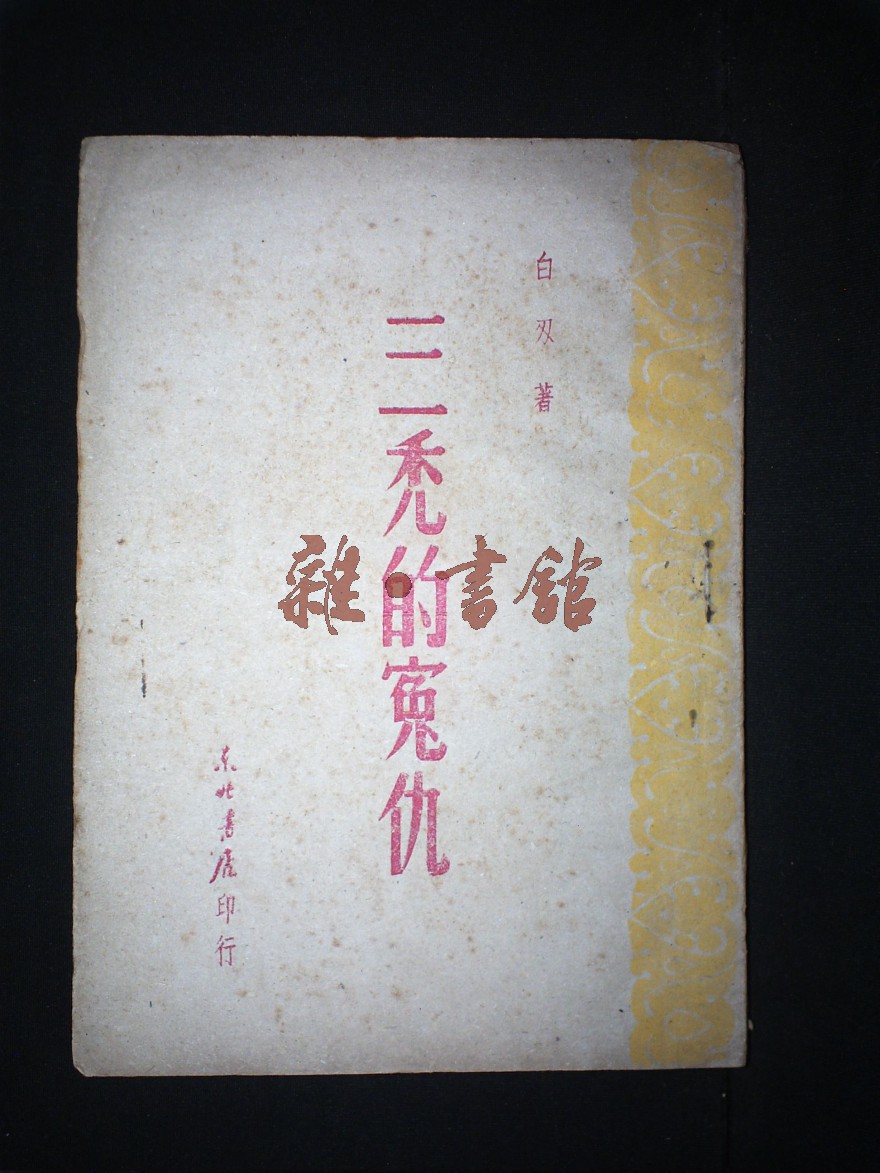 白刄著
三秃的寃仇
东北书店印行
雜·書館